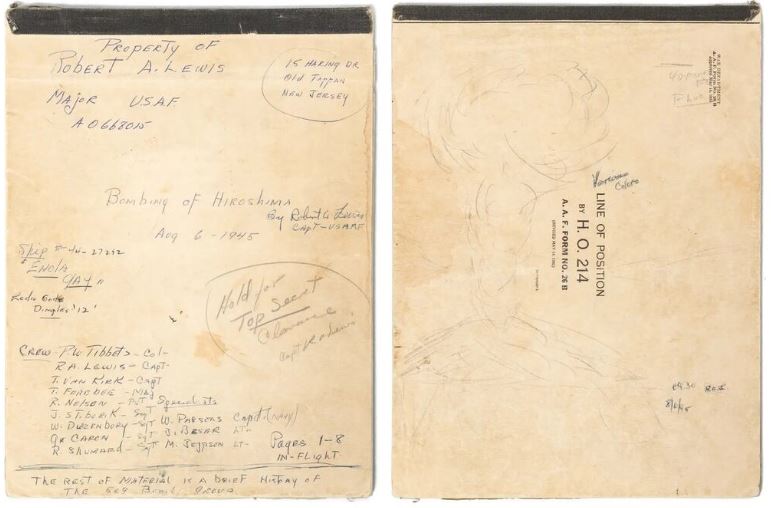 Property of
Robert A. Lewis
Major USAF
AO668015
15 Haring Dr
Old Tappan
New Jersey
Bombing of Hiroshima
By Robert A Lewis
Capt - USAAF
Aug 6 - 1945
Ship # 44-27292
"Enola
Gay"
Radio Code
Dimples '12'
Hold for
Top Secret
Clearance
Capt RA Lewis
Crew - P.W Tibbets - Col -
R.A. Lewis - Capt -
T. Van Kirk - Capt
T. Ferebee - Maj
R. Nelson - Pvt
J. Stiborik - Sgt
W. Duzenbury - Sgt
G Caron - Sgt
R. Shumard - Sgt
Specialists
W. Parsons Capt (Navy)
J. Beser Lt -
M. Jeppson Lt -
Pages 1-8
In-Flight
The rest of material is a brief history of
the 509 Bomb. Group
WAR DEPARTMENT
LINE OF POSITION
BY H. O. 214
A. A. F. FORM NO. 26 B
Various
0930
8/6/45